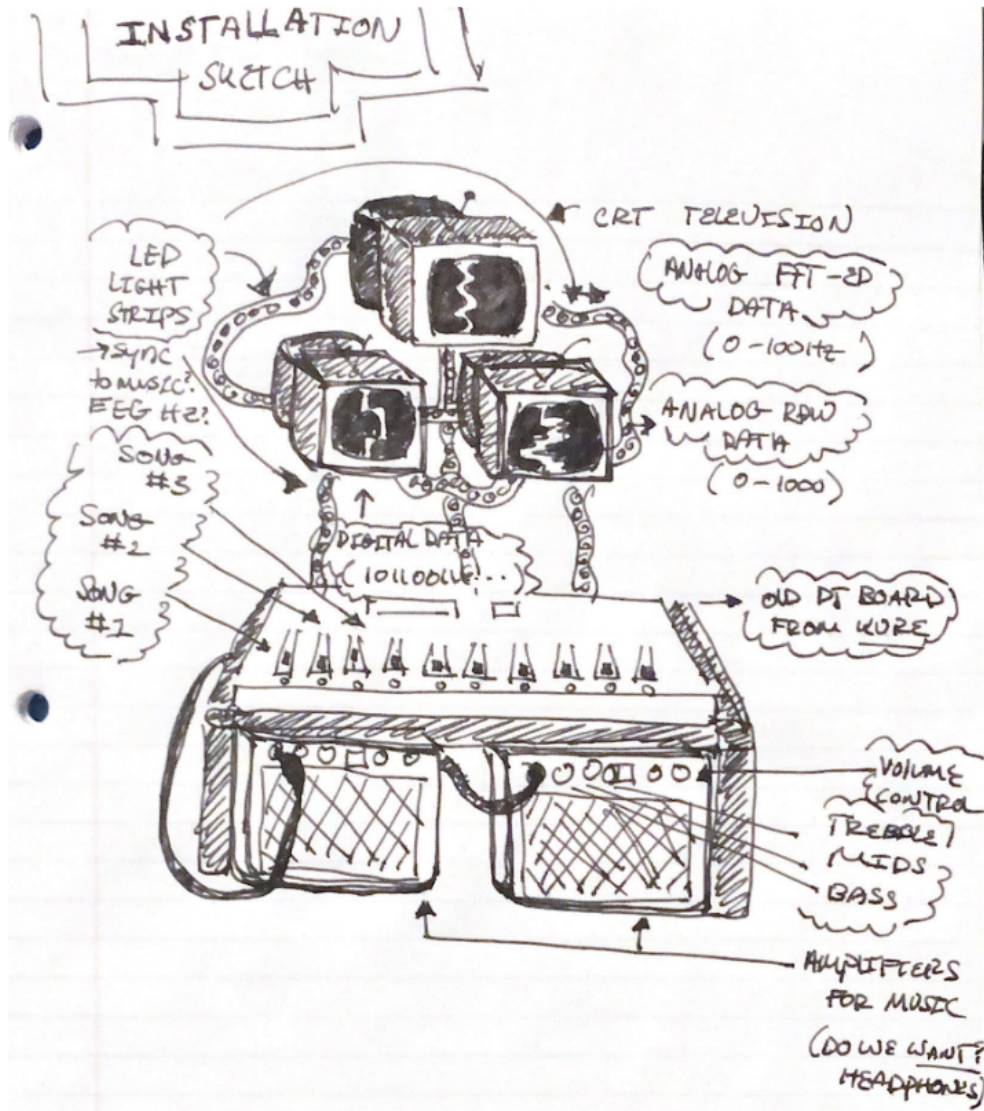 INSTALLATION
SKETCH
CRT TELEVISION
LED
LIGHT
STRIPS
→ SYNC
to MUSIC?
EEG HZ?
ANALOG FFT-ED
DATA
(0-100Hz)
ANALOG RAW
DATA
(0-1000)
SONG
#3
SONG
#2
SONG
#1
DIGITAL DATA
1011001...
OLD DJ BOARD
FROM KURE
VOLUME
CONTROL
TREBBLE
MIDS
BASS
AMPLIFIERS
FOR MUSIC
(DO WE WANT?
HEADPHONES)